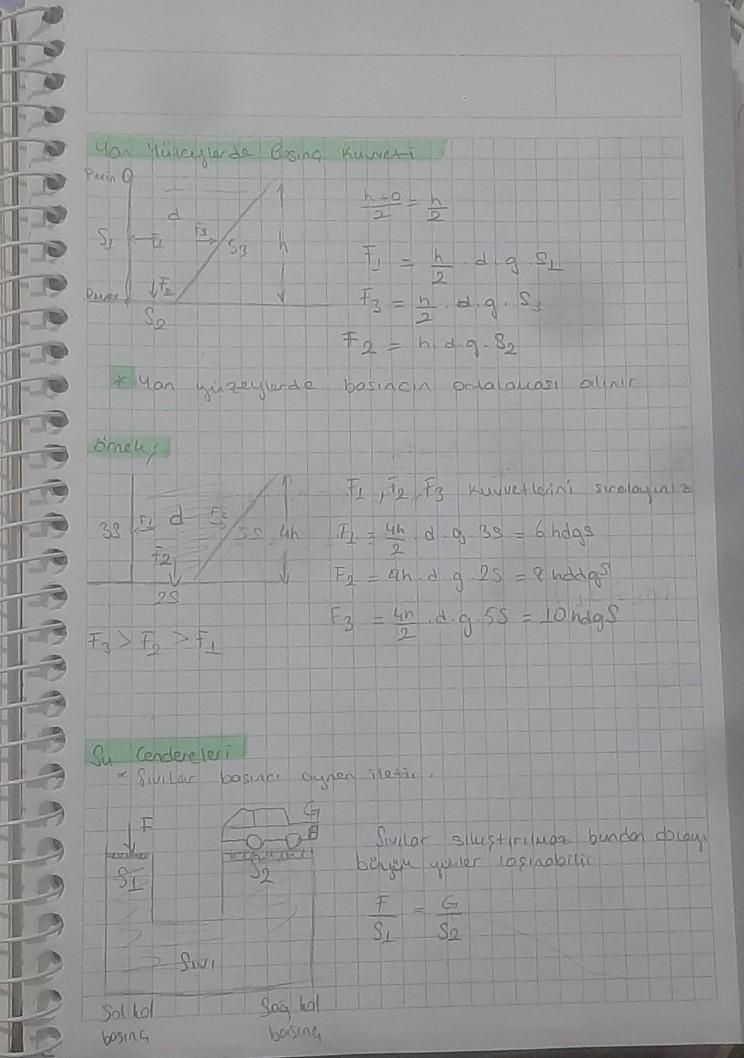 Yan Yüzeylerde Basınç Kuvveti
Pmin 0
d
S1
F1
F3
S3
h
F2
Pmax
S2
h+0/2 = h/2
F1 = h/2 . d . g . S1
F3 = h/2 . d . g . S3
F2 = h . d . g . S2
* Yan yüzeylerde basıncın ortalaması alınır
Örnek;
3S
F1
d
F3
5S
4h
F2
2S
F1, F2, F3 kuvvetlerini sıralayınız
F1 = 4h/2 . d . g . 3S = 6hdgS
F2 = 4h . d . g . 2S = 8hddgS
F3 = 4h/2 . d . g 5S = 10hdgS
F3 > F2 > F1
Su Cendereleri
* Sıvılar basıncı aynen iletir.
F
G
S1
S2
Sıvı
Sol kol basınç
Sağ kol basınç
Sıvılar sıkıştırılmaz bundan dolayı
büyük yükler taşınabilir
F/S1 = G/S2